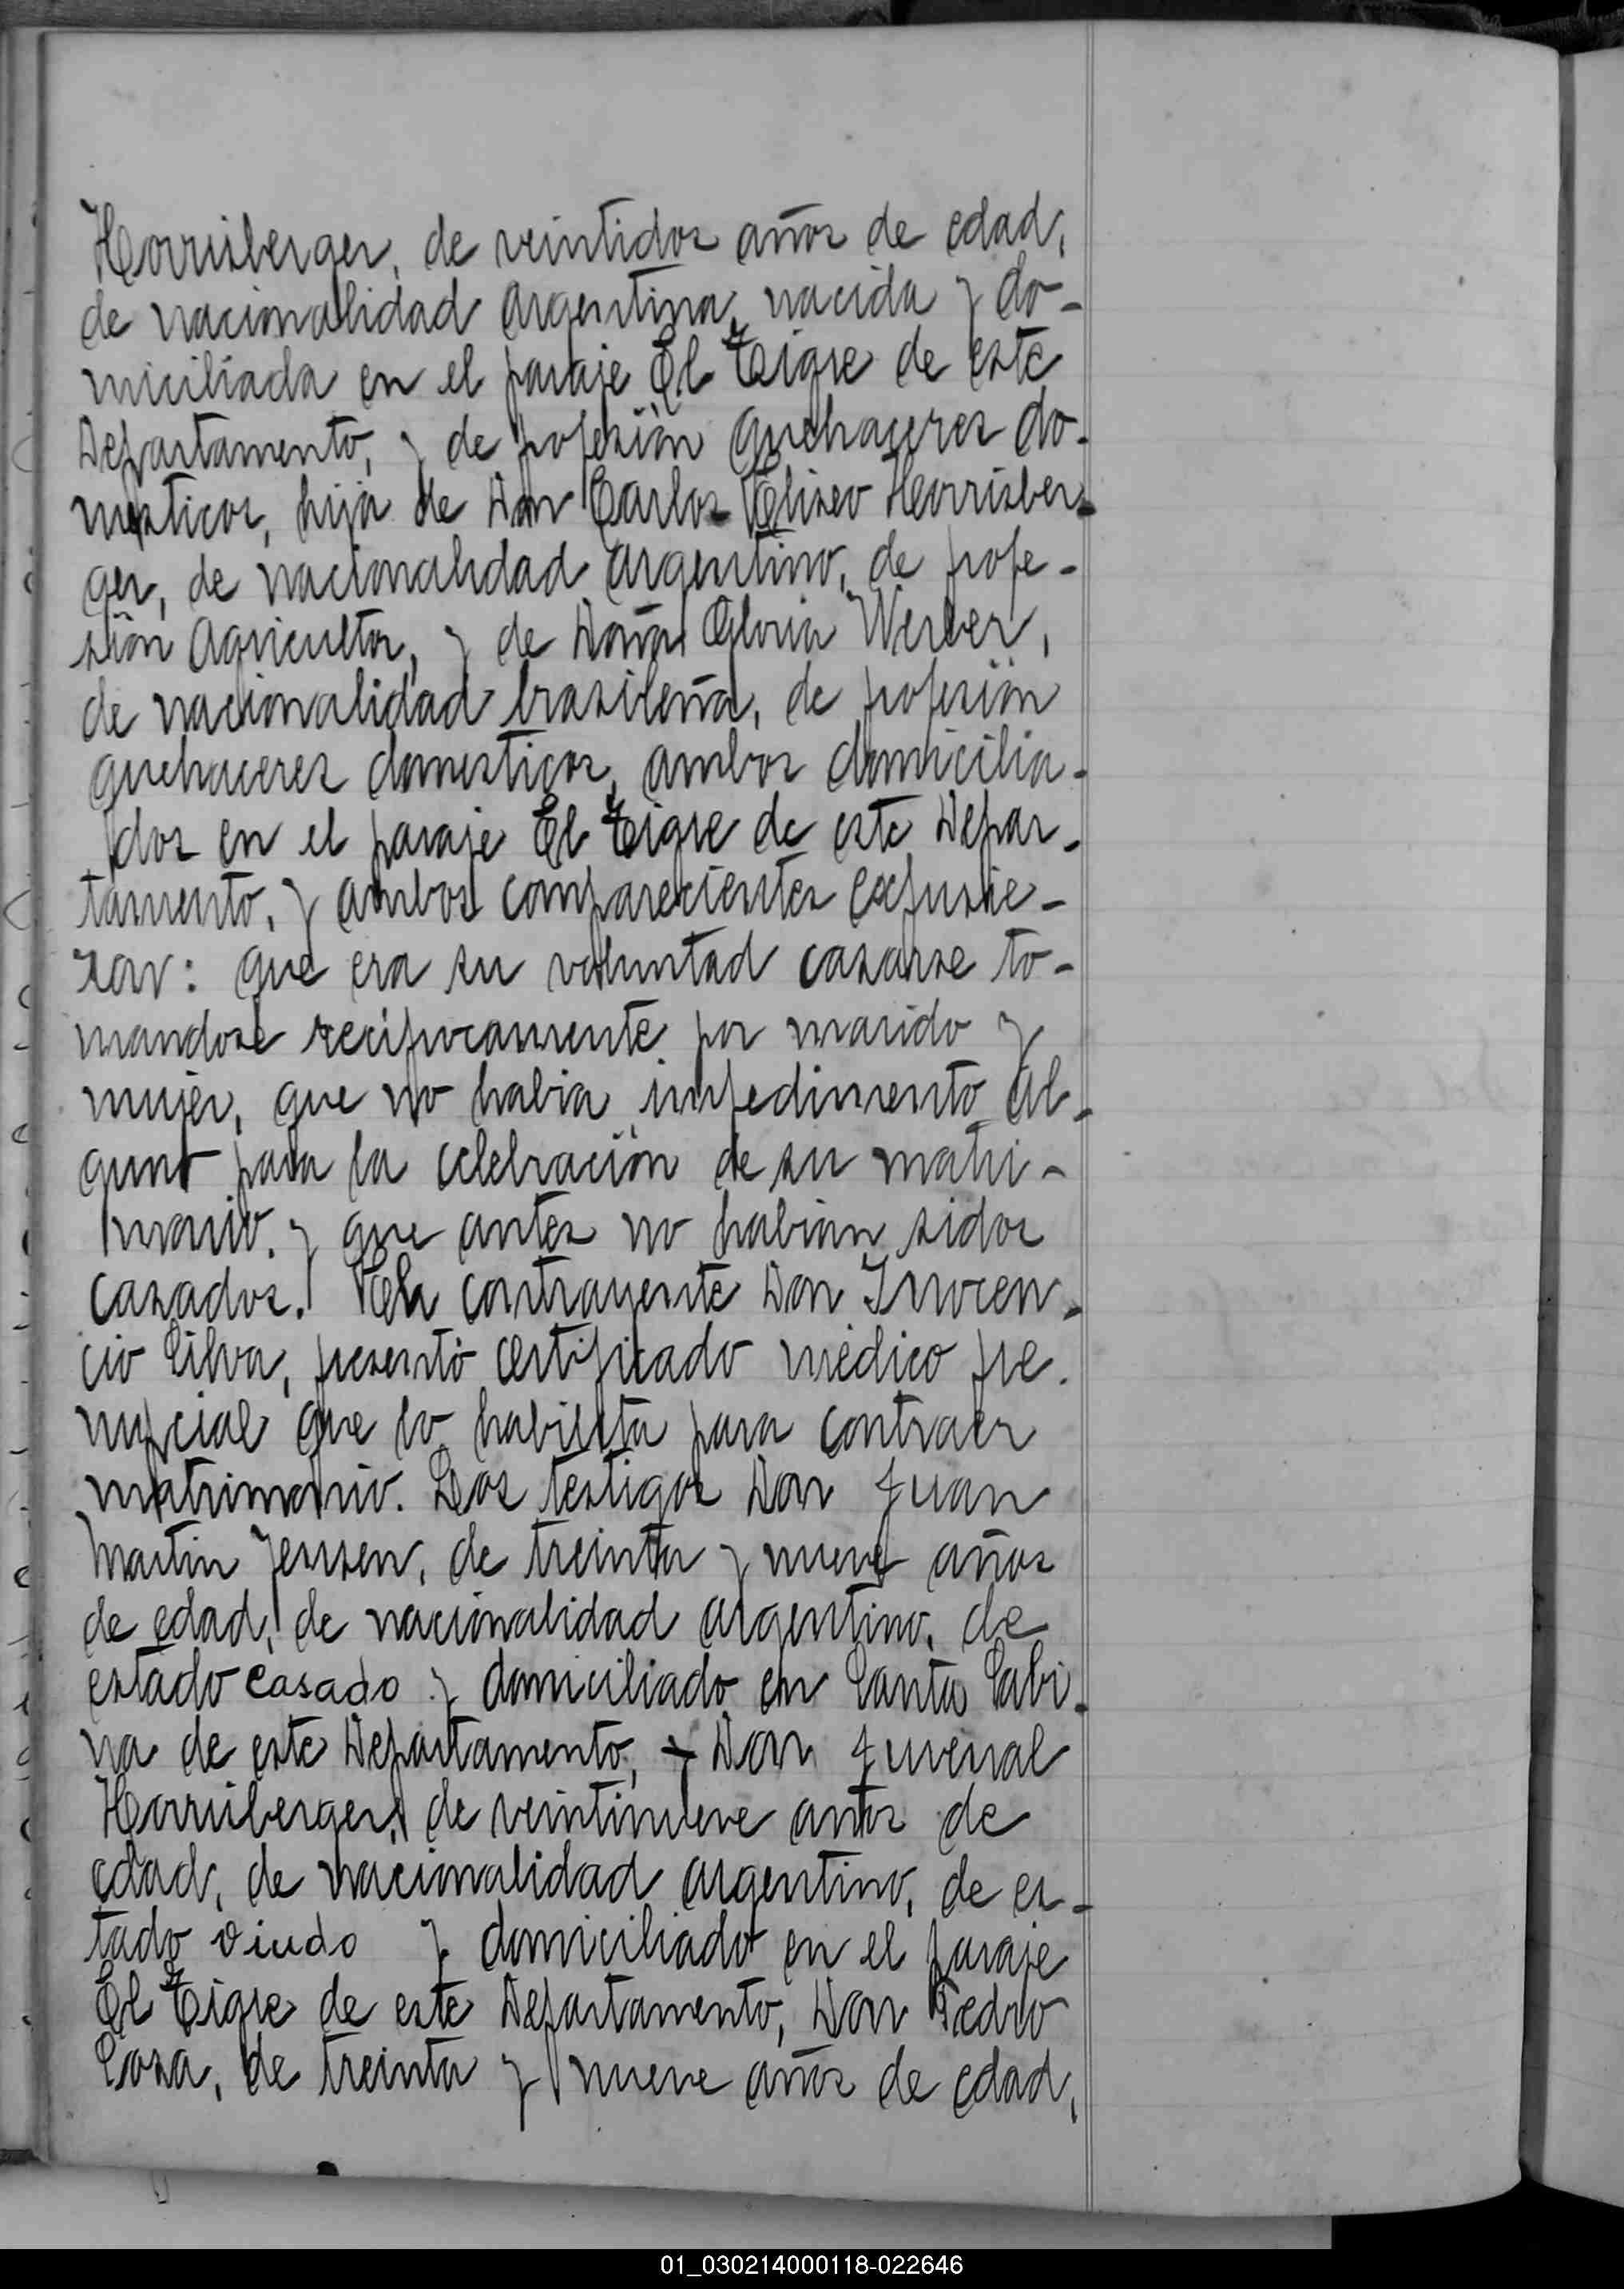 Horrisberger, de veintidos años de edad,
de nacionalidad argentina, nacida y do-
miciliada en el paraje El Tigre de este
Departamento, y de profesión quehaceres do-
mesticos, hija de Don Carlos Eliseo Horrisber-
ger, de nacionalidad argentino, de profe-
sión Agricultor, y de Doña Gloria Werber,
de nacionalidad brasileña, de profesión
quehaceres domesticos, ambos domicilia-
dos en el paraje El Tigre de este Depar-
tamento, y ambos comparecientes expusie-
ron: que era su voluntad casarse to-
mandose reciprocamente por marido y
mujer, que no habia impedimento al-
guno para la celebración de su matri-
monio. y que antes no habian sidos
casados. El contrayente Don Inocen-
cio Silva, presentó certificado médico pre-
nupcial que lo habilita para contraer
matrimonio. Los testigos Don Juan
Martin Jensen, de treinta y nueve años
de edad, de nacionalidad argentino, de
estado casado y domiciliado en Santa Sabi-
na de este Departamento, y Don Juvenal
Horrisberger, de veintinueve años de
edad, de nacionalidad argentino, de es-
tado viudo y domiciliado en el paraje
El Tigre de este Departamento, Don Pedro
Sosa, de treinta y nueve años de edad,
01_030214000118-022646